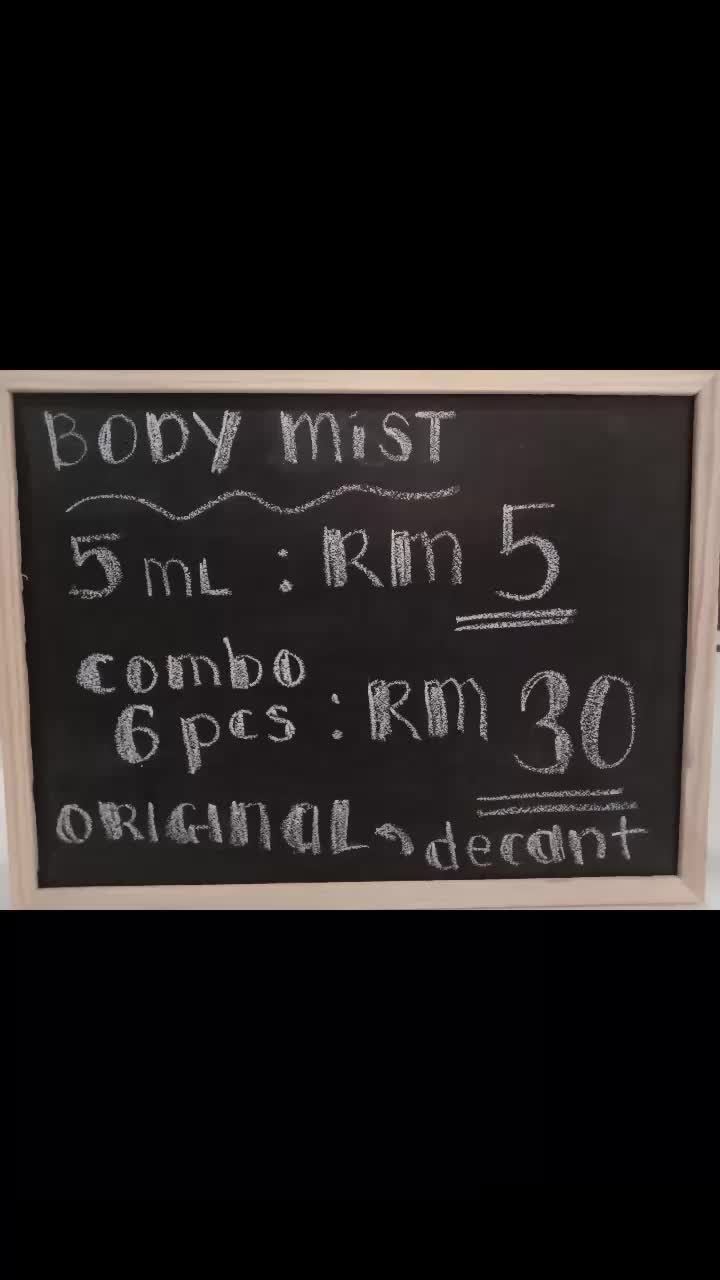 BODY MiST
5 mL : Rm 5
combo
6 pcs : Rm 30
ORIGINAL, decant